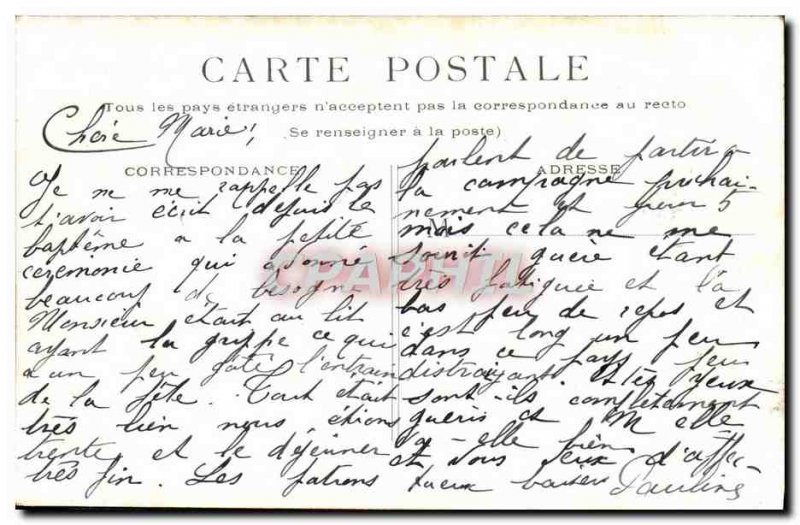 CARTE POSTALE
Tous les pays étrangers n'acceptent pas la correspondance au recto
(Se renseigner à la poste)
CORRESPONDANCE
ADRESSE
Chère Marie,
Je ne me rappelle pas
t'avoir écrit depuis le
baptême à la petite
cérémonie qui a donné
beaucoup de besogne
Monsieur était au lit
ayant la grippe ce qui
a un peu gâté l'entrain
de la fête. Tout était
très bien nous étions
trente et le déjeuner
très fin. Les patrons
parlent de partir à
la campagne prochai-
nement et
mais cela ne me
sourit guère étant
très fatiguée et là
bas peu de repos et
c'est long un peu
dans ce pays peu
distrayant. Et tes yeux
sont-ils complètement
guéris et M elle
va-elle bien
et vous deux d'affec-
tueux baisers Pauline
CPAPHIL